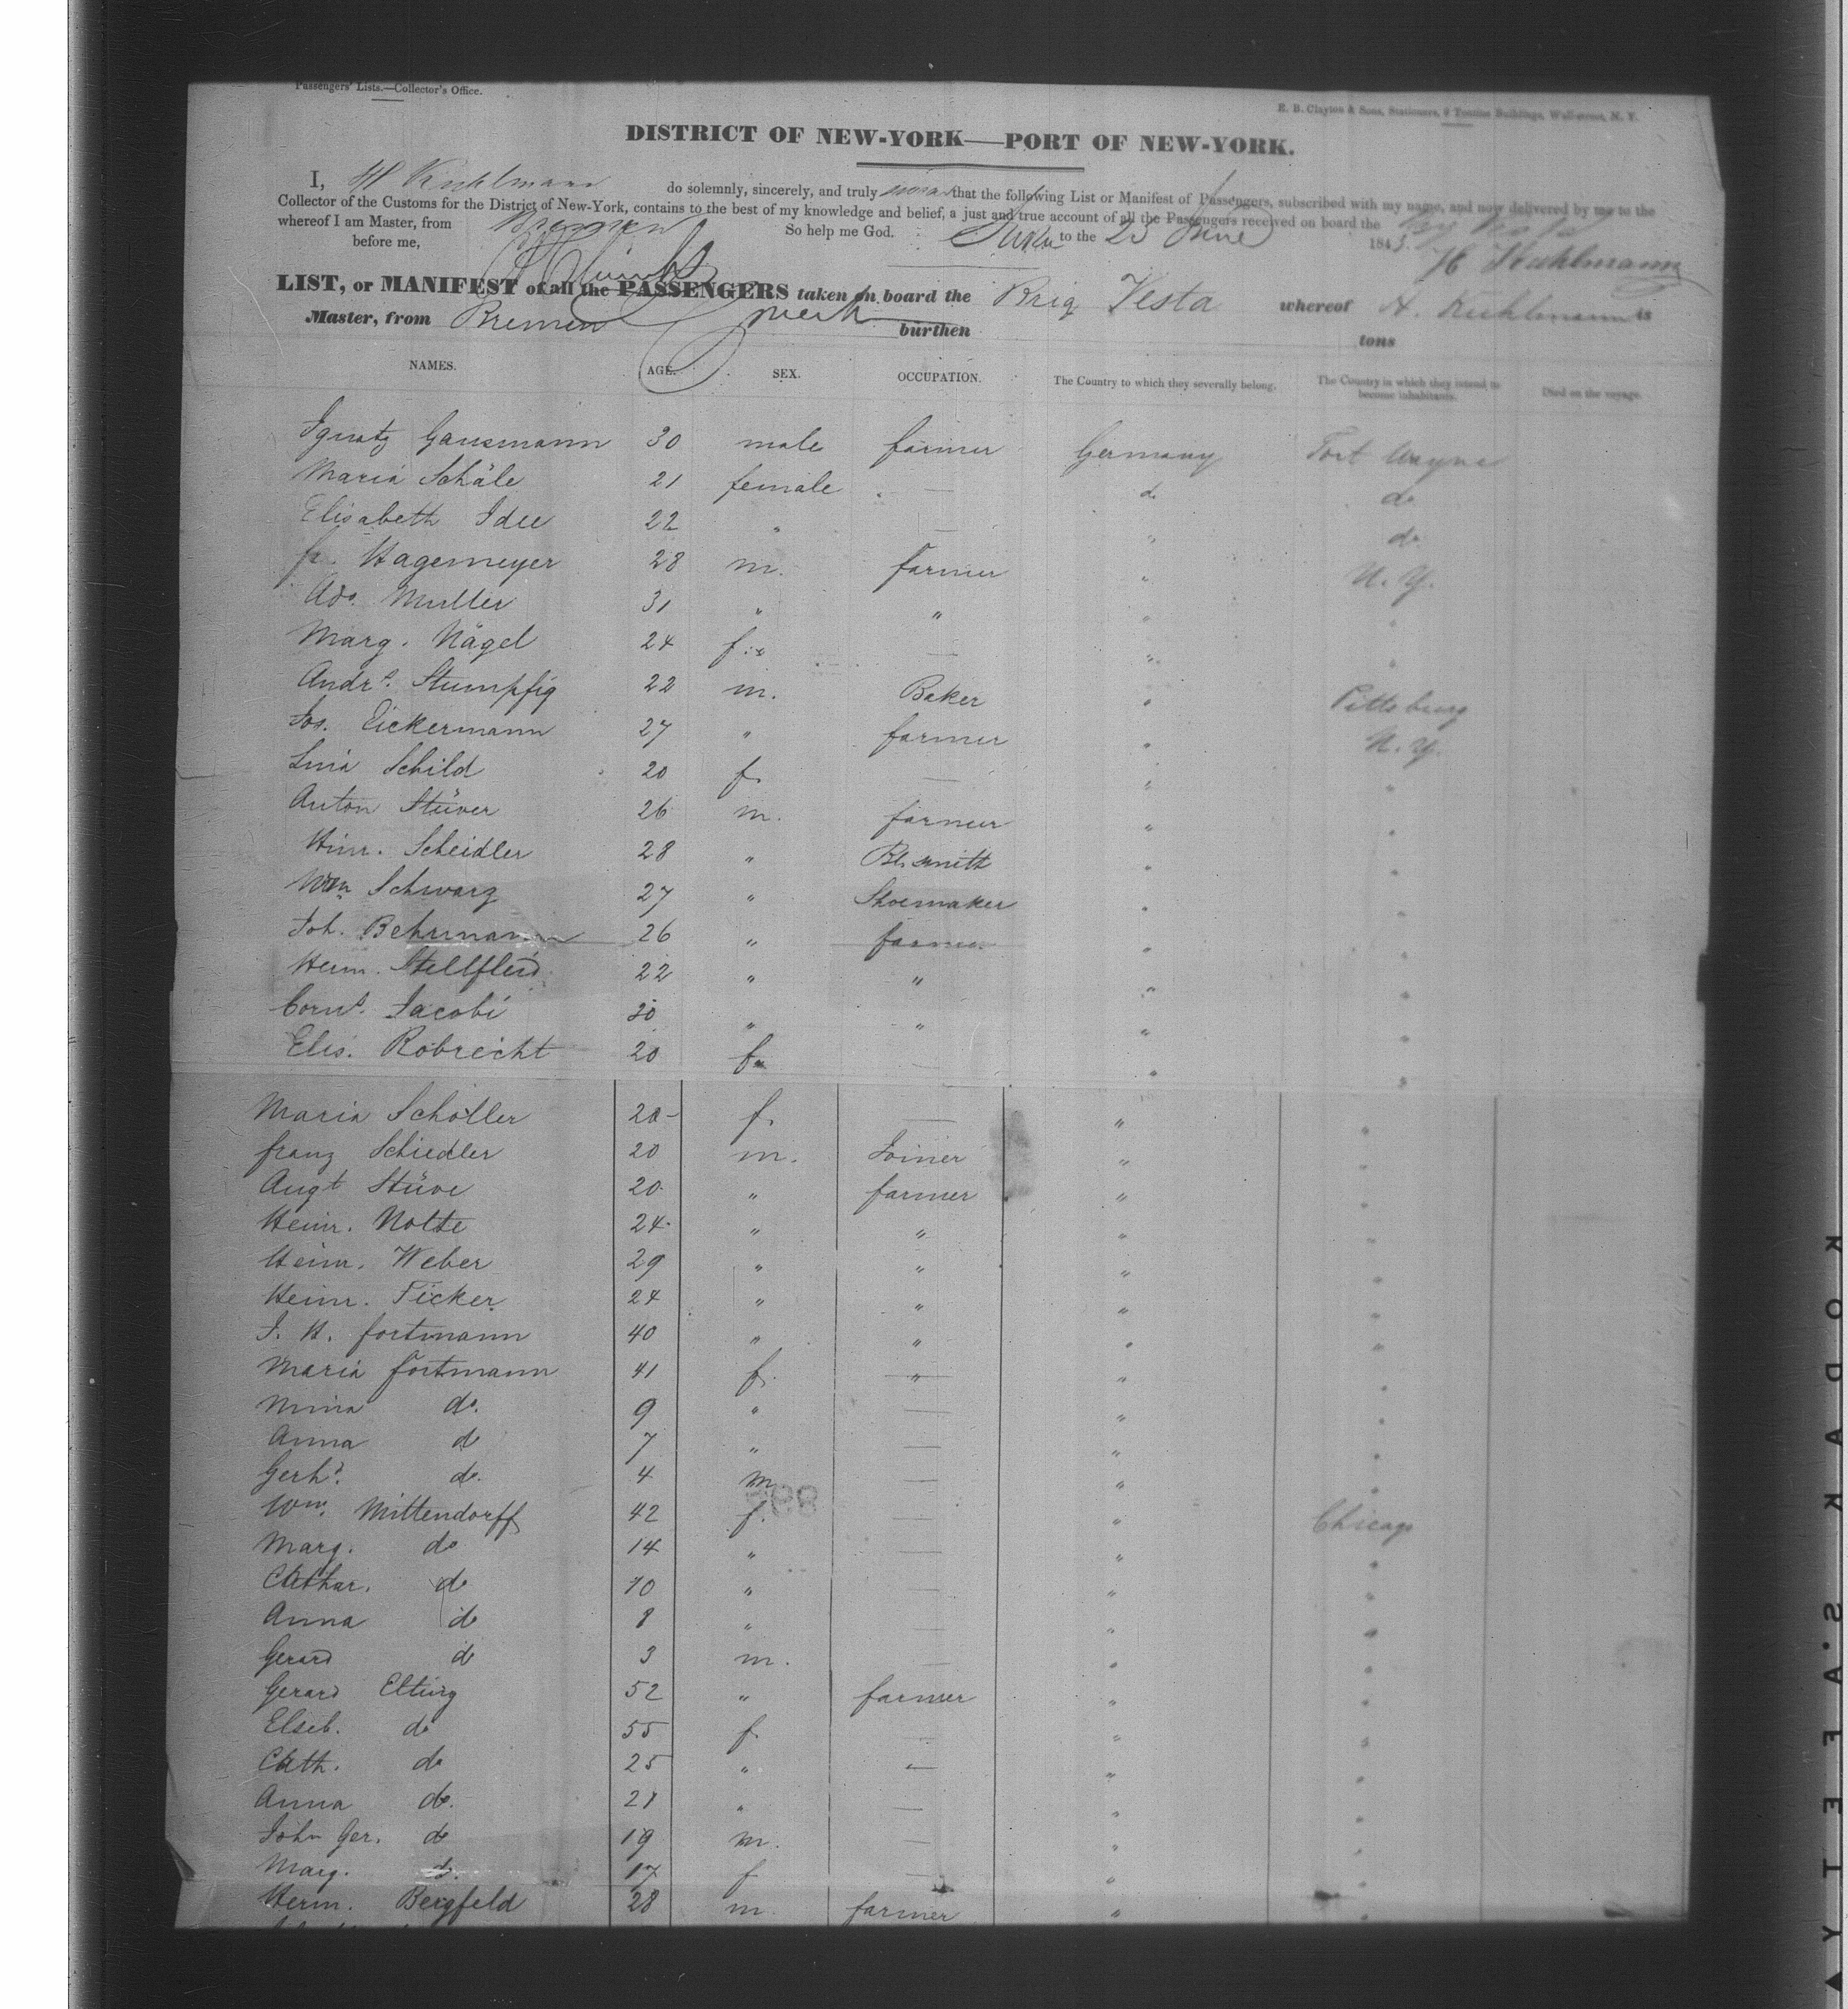 Passengers' Lists.—Collector's Office.
E. B. Clayton & Sons, Stationers, Tontine Buildings, Wall-street, N. Y.
DISTRICT OF NEW-YORK—PORT OF NEW-YORK.
I, H Kuhlmann do solemnly, sincerely, and truly swear that the following List or Manifest of Passengers, subscribed with my name, and now delivered by me to the
Collector of the Customs for the District of New-York, contains to the best of my knowledge and belief, a just and true account of all the Passengers received on board the
whereof I am Master, from Bremen So help me God.
before me, to the 23 June 1843. H Kuhlmann
LIST, or MANIFEST of all the PASSENGERS taken on board the Brig Vesta whereof H. Kuhlmann is
Master, from Bremen burthen tons
NAMES. AGE. SEX. OCCUPATION. The Country to which they severally belong. The Country in which they intend to become inhabitants. Died on the voyage.
Ignatz Gausmann 30 male farmer Germany Fort Wayne
Maria Schäle 21 female — do do
Elisabeth Idee 22 " — " do
fr. Hagemeyer 28 m. farmer " N. Y.
Ado. Muller 31 " " " "
Marg. Nägel 24 f. — " "
Andrs. Stumpfig 22 m. Baker " Pittsburg
Jos. Eickermann 27 " farmer " N. Y.
Lina Schild 20 f. — " "
Anton Stüver 26 m. farmer " "
Hinr. Scheidler 28 " Bl. smith " "
Wm Schwarz 27 " Shoemaker " "
Joh. Behrmann 26 " farmer " "
Heinr. Stellfleid 22 " " " "
Corns. Jacobi 20 " " " "
Elis. Robrecht 20 f. — " "
Maria Schotler 20 f. — " "
franz Schiedler 20 m. Joiner " "
Augt Stüve 20 " farmer " "
Heinr. Nolte 24 " " " "
Heinr. Weber 29 " " " "
Heinr. Ficker 24 " " " "
J. H. fortmann 40 " " " "
Maria fortmann 41 f. — " "
Mina do. 9 " — " "
Anna do 7 " — " "
Gerhd. do. 4 m. — " "
Wm. Mittendorff 42 f. — " Chicago
Marg. do 14 " — " "
Cathar. do 10 " — " "
Anna do 8 " — " "
Gerard do 3 m. — " "
Gerard Elting 52 " farmer " "
Elseb. do 55 f. — " "
Cath. do 25 " — " "
Anna do. 21 " — " "
John Ger. do 19 m. — " "
Marg. do. 17 f — " "
Herm. Bergfeld 28 m. farmer " "
SAFETY KODAK